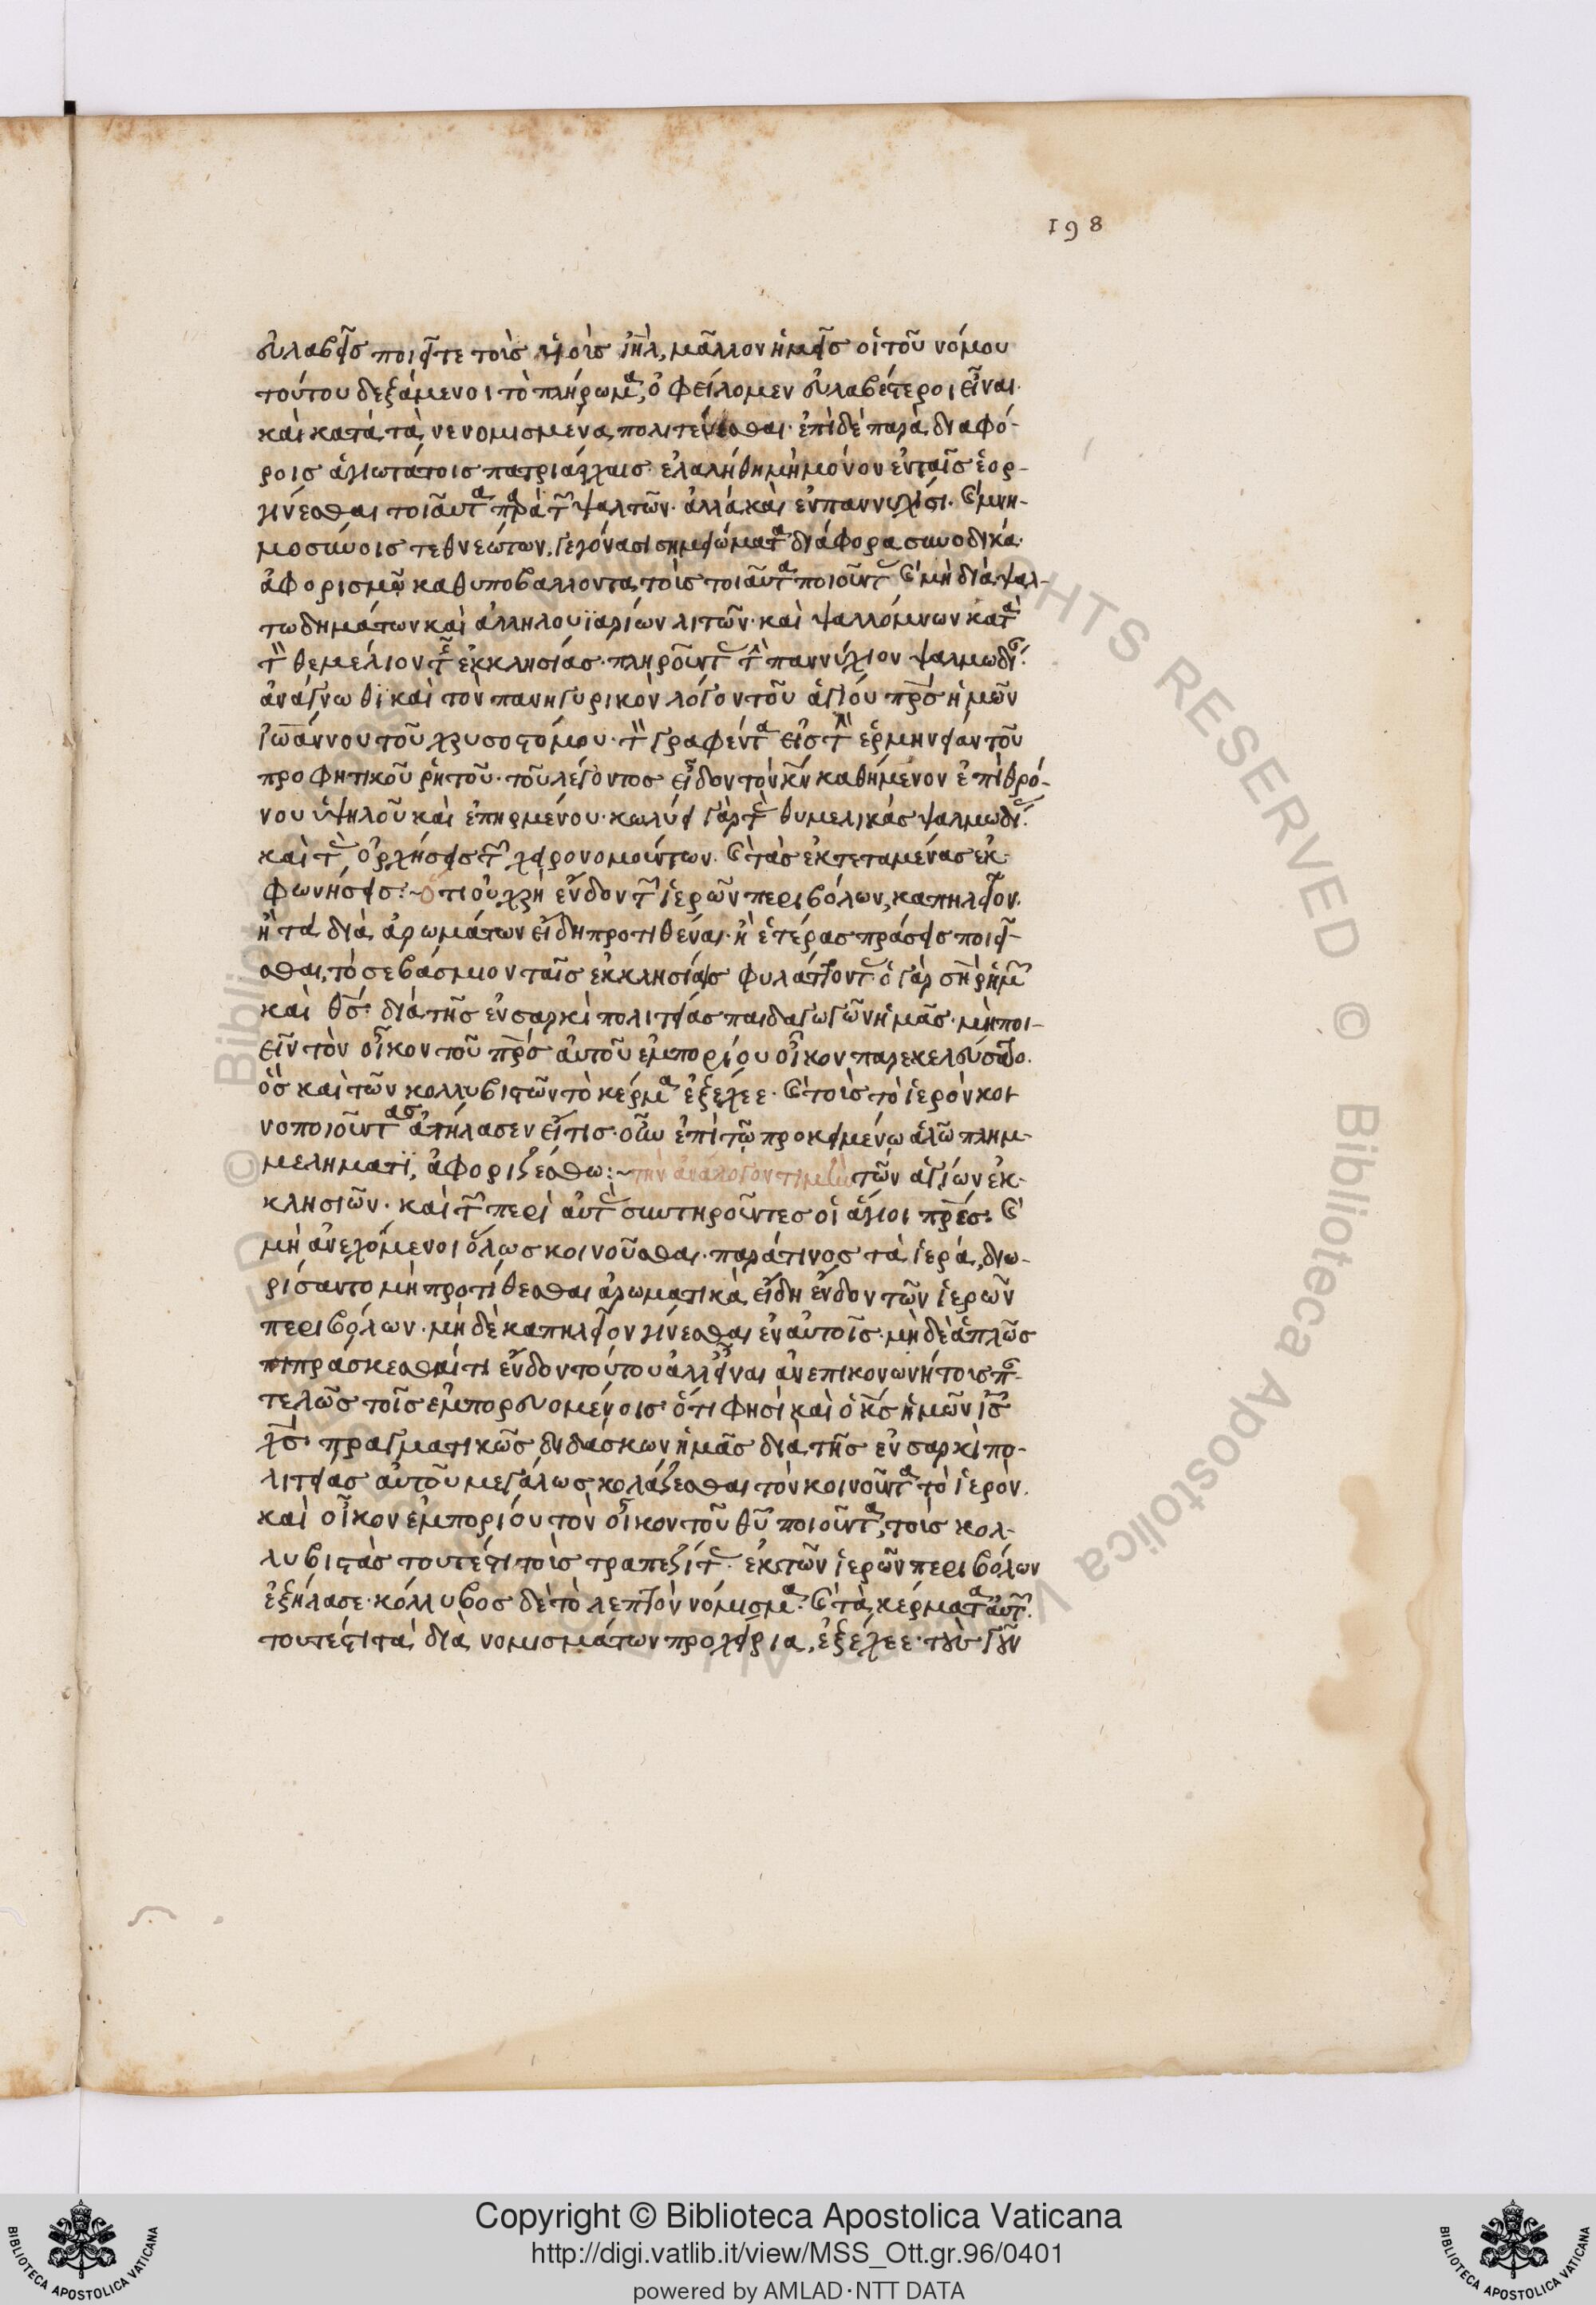 198
εὐλαβεῖς ποιεῖτε τοὺς υἱοὺς ἰῆλ, μᾶλλον ἡμεῖς οἱ τοῦ νόμου
τούτου δεξάμενοι τὸ πλήρωμα, ὀφείλομεν εὐλαβέστεροι εἶναι.
καὶ κατὰ τὰ νενομισμένα πολιτεύεσθαι. ἐπὶ δὲ παρὰ διαφό-
ροις ἁγιωτάτοις πατριάρχαις ἐλαλήθη μὴ μόνον ἐν ταῖς ἑορ-
γίνεσθαι τοιαῦτα παρὰ τῶν ψαλτῶν. ἀλλὰ καὶ ἐν παννυχίσι. καὶ μνη-
μοσύνοις τεθνεώτων, γεγόνασι σημειώματα διάφορα συνοδικὰ
ἀφορισμῷ καθυποβάλλοντα τοὺς τοιαῦτα ποιοῦντας καὶ μὴ διὰ ψαλ-
τωδημάτων καὶ ἀλληλουϊαρίων λιτῶν. καὶ ψαλλομένων κατὰ
τὸν θεμέλιον τῆς ἐκκλησίας. πληροῦντας τὴν παννύχιον ψαλμωδίαν.
ἀνάγνωθι καὶ τὸν πανηγυρικὸν λόγον τοῦ ἁγίου πρς ἡμῶν
ἰωάννου τοῦ χρυσοστόμου. τὸν γραφέντα εἰς τὴν ἑρμηνείαν τοῦ
προφητικοῦ ῥητοῦ. τοῦ λέγοντος εἶδον τὸν κν καθήμενον ἐπὶ θρό-
νου ὑψηλοῦ καὶ ἐπηρμένου. κωλύει γὰρ τὰς θυμελικὰς ψαλμωδίας.
καὶ τὰς ὀρχήσεις τῶν χειρονομούντων. καὶ τὰς ἐκτεταμένας ἐκ
φωνήσεις:~ ὅτι οὐ χρὴ ἔνδον τῶν ἱερῶν περιβόλων, καπηλεῖον.
ἢ τὰ διὰ ἀρωμάτων εἴδη προτιθέναι. ἢ ἑτέρας πράσεις ποιεῖ-
σθαι, τὸ σεβάσμιον ταῖς ἐκκλησίαις φυλάττοντας. ὁ γὰρ σηρ ἡμῶν
καὶ θς. διὰ τῆς ἐν σαρκὶ πολιτείας παιδαγωγῶν ἡμᾶς. μὴ ποι-
εῖν τὸν οἶκον τοῦ πρς αὐτοῦ ἐμπορίου οἶκον παρεκελεύσατο.
ὃς καὶ τῶν κολλυβιστῶν τὸ κέρμα ἐξέχεε. καὶ τοὺς τὸ ἱερὸν κοι
νοποιοῦντας ἀπήλασεν εἴ τις οὖν ἐπὶ τῷ προκειμένῳ ἁλῷ πλημ-
μελήματι, ἀφοριζέσθω:~ τὴν ἀνάλογον τιμὴν τῶν ἁγίων ἐκ-
κλησιῶν. καὶ τῶν περὶ αὐτὰς συντηροῦντες οἱ ἅγιοι πρες. καὶ
μὴ ἀνεχόμενοι ὅλως κοινοῦσθαι. παρά τινος τὰ ἱερά, διω-
ρίσαντο μὴ προτίθεσθαι ἀρωματικὰ εἴδη ἔνδον τῶν ἱερῶν
περιβόλων. μὴ δὲ καπηλεῖον γίνεσθαι ἐν αὐτοῖς. μὴ δὲ ἁπλῶς
πιπράσκεσθαί τι ἔνδον τούτου ἀλλ' εἶναι ἀνεπικοινωνήτους παν-
τελῶς τοῖς ἐμπορευομένοις ὅτι φησὶ καὶ ὁ κς ἡμῶν ις
χς πραγματικῶς διδάσκων ἡμᾶς διὰ τῆς ἐν σαρκὶ πο-
λιτείας αὐτοῦ μεγάλως κολάζεσθαι τὸν κοινοῦντα τὸ ἱερὸν.
καὶ οἶκον ἐμπορίου τὸν οἶκον τοῦ θυ ποιοῦντα, τοὺς κολ-
λυβιστὰς τουτέστι τοὺς τραπεζίτας. ἐκ τῶν ἱερῶν περιβόλων
ἐξήλασε. κόλλυβος δὲ τὸ λεπτὸν νόμισμα. καὶ τὰ κέρματα αὐτῶν.
τουτέστι τὰ διὰ νομισμάτων προχείρια, ἐξέχεε. τοὺς γοῦν
Copyright © Biblioteca Apostolica Vaticana
http://digi.vatlib.it/view/MSS_Ott.gr.96/0401
powered by AMLAD·NTT DATA